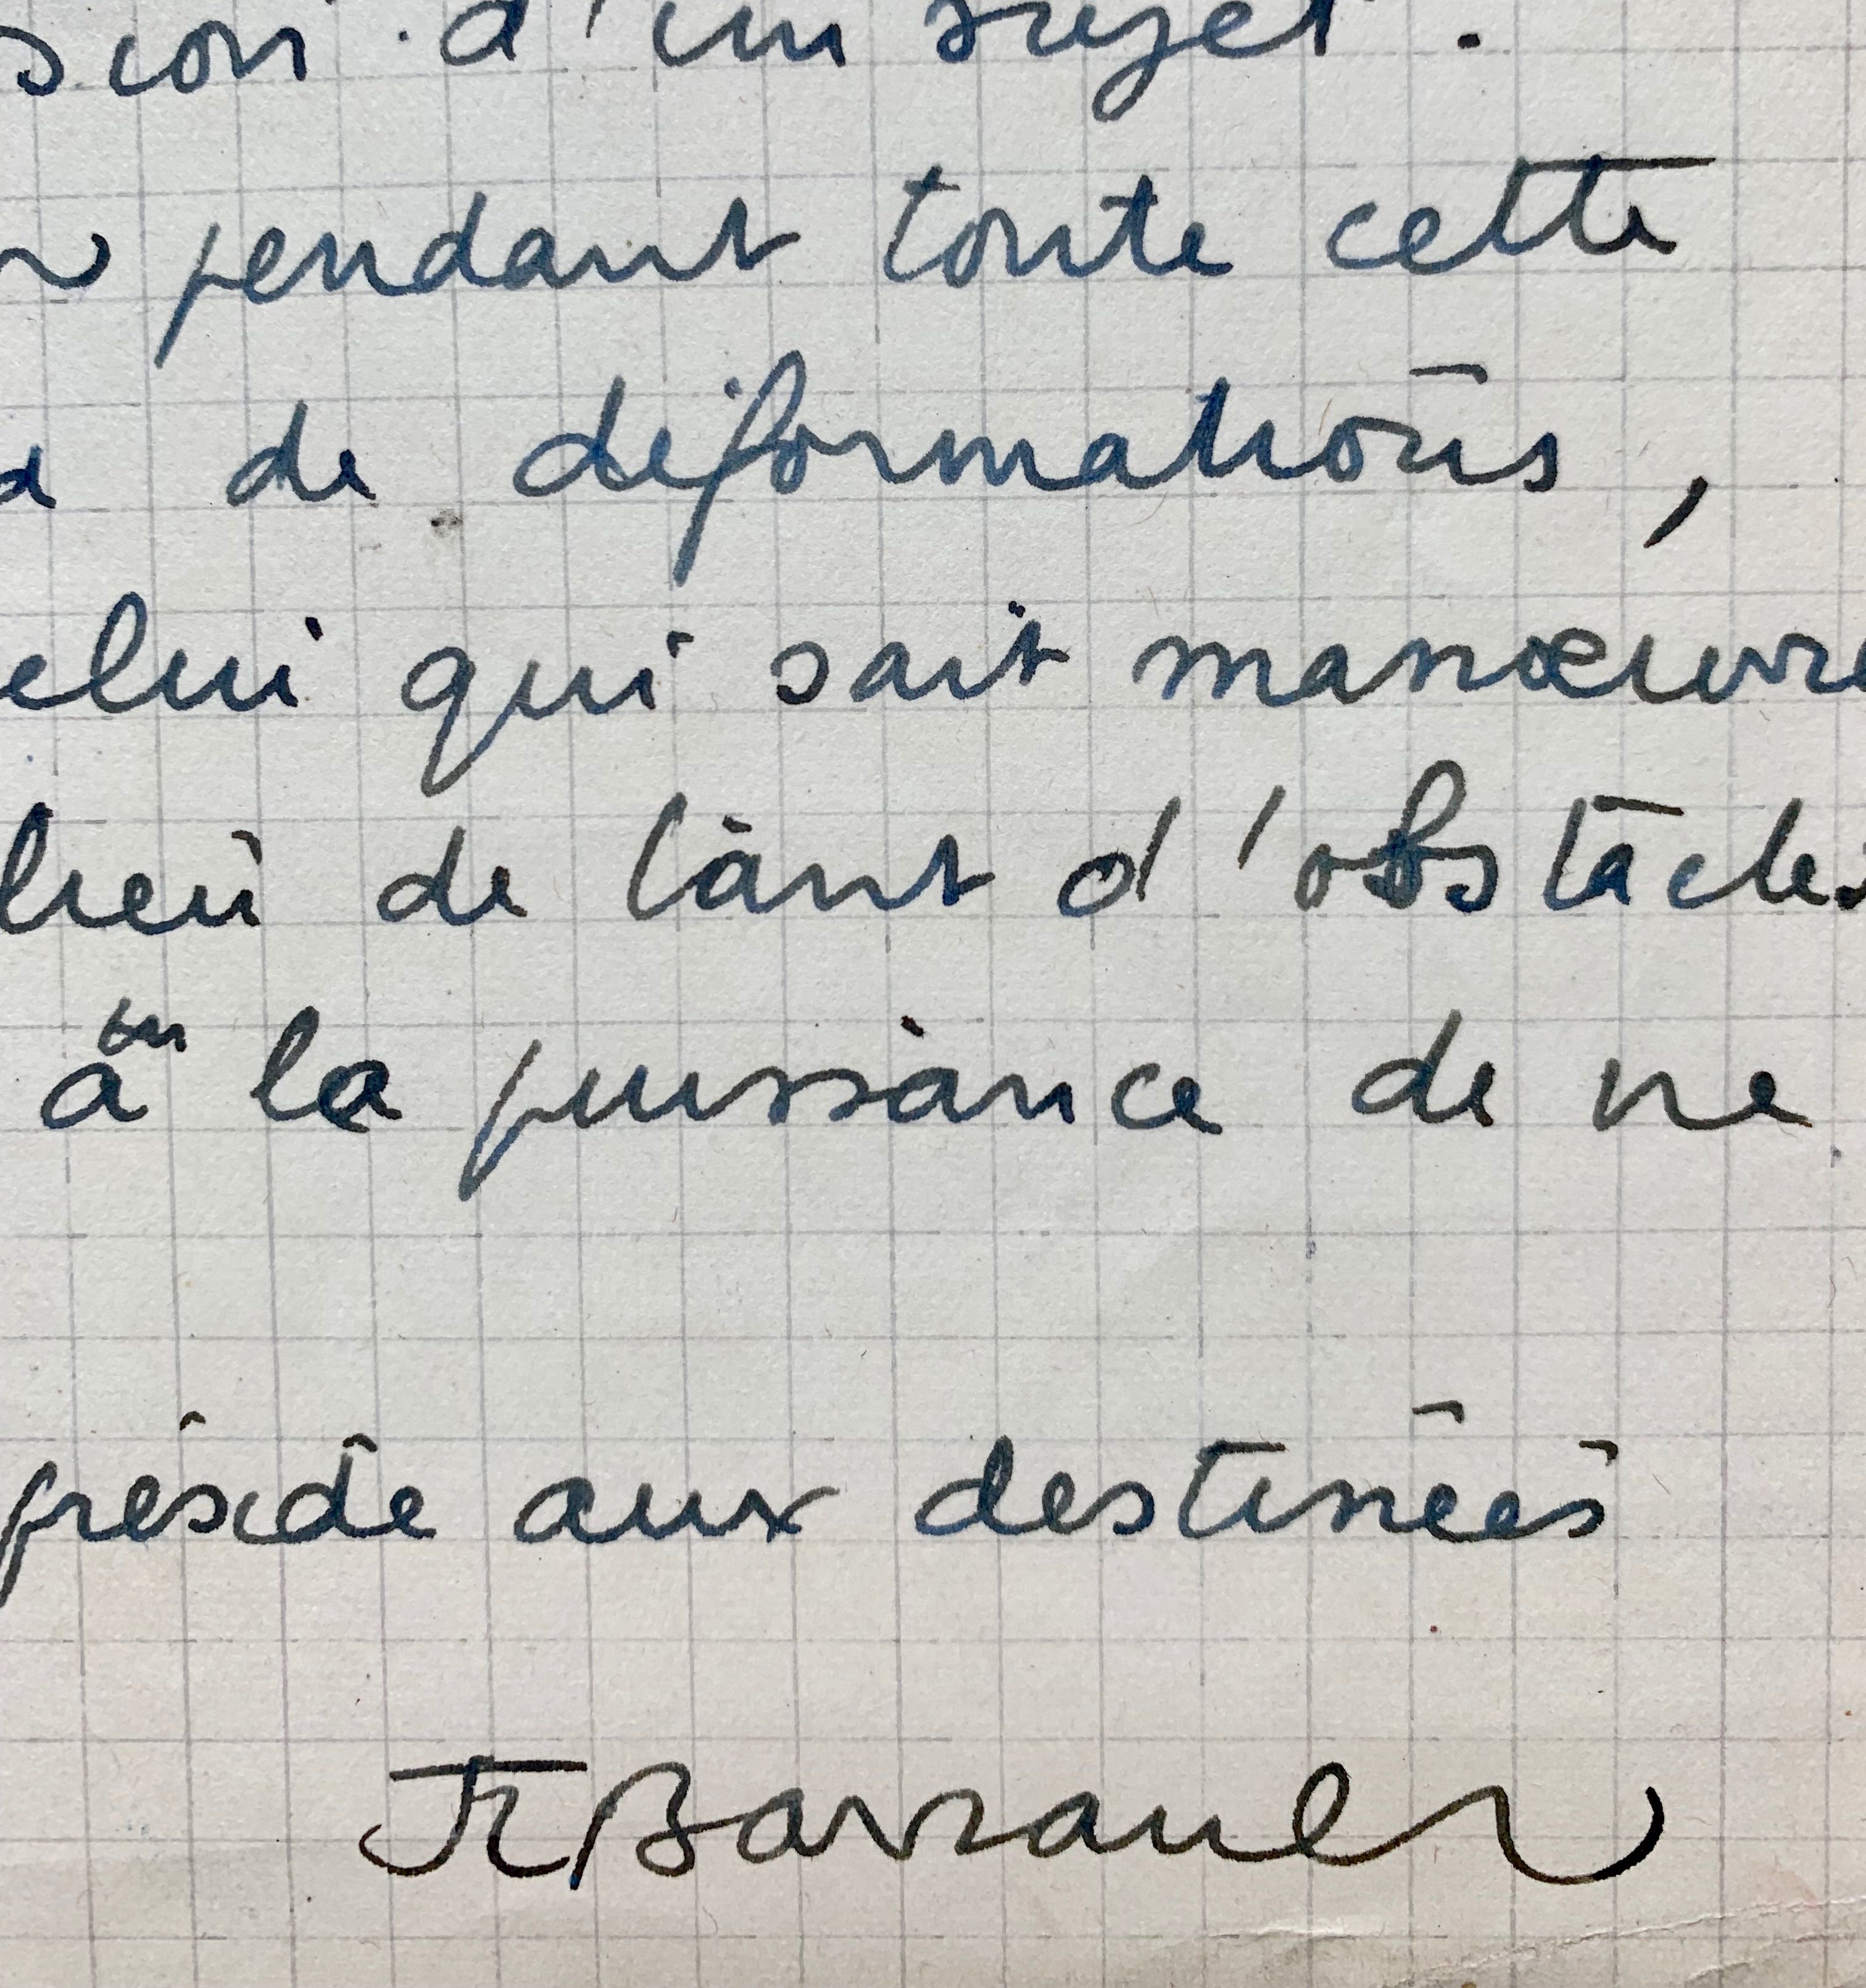 sion d'un sujet.
pendant toute cette
de déformations,
elui qui sait manœuvre
lieu de tant d'obstacles
a
en
la puissance de ne
préside aux destinées